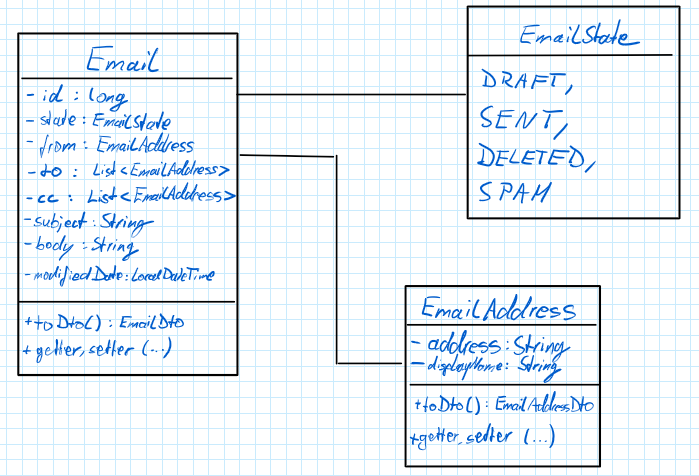 Email
- id : long
- state : EmailState
- from : EmailAddress
- to : List<EmailAddress>
- cc : List<EmailAddress>
- subject : String
- body : String
- modifiedDate : LocalDateTime
+ toDto() : EmailDto
+ getter, setter (...)
EmailState
DRAFT,
SENT,
DELETED,
SPAM
EmailAddress
- address : String
- displayName : String
+ toDto() : EmailAddressDto
+ getter, setter (...)